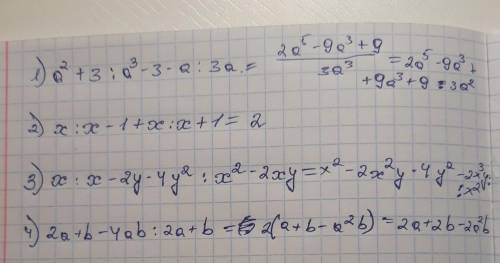 1) a² + 3 : a³ - 3 - a : 3a = (2a⁵ - 9a³ + 9)/(3a³) = 2a⁵ - 9a³ +
+ 9a³ + 9 : 3a²
2) x : x - 1 + x : x + 1 = 2
3) x : x - 2y - 4y² : x² - 2xy = x² - 2x²y - 4y² - 2x³y
: x²
4) 2a + b - 4ab : 2a + b = 2(a + b - a²b) = 2a + 2b - 2a²b